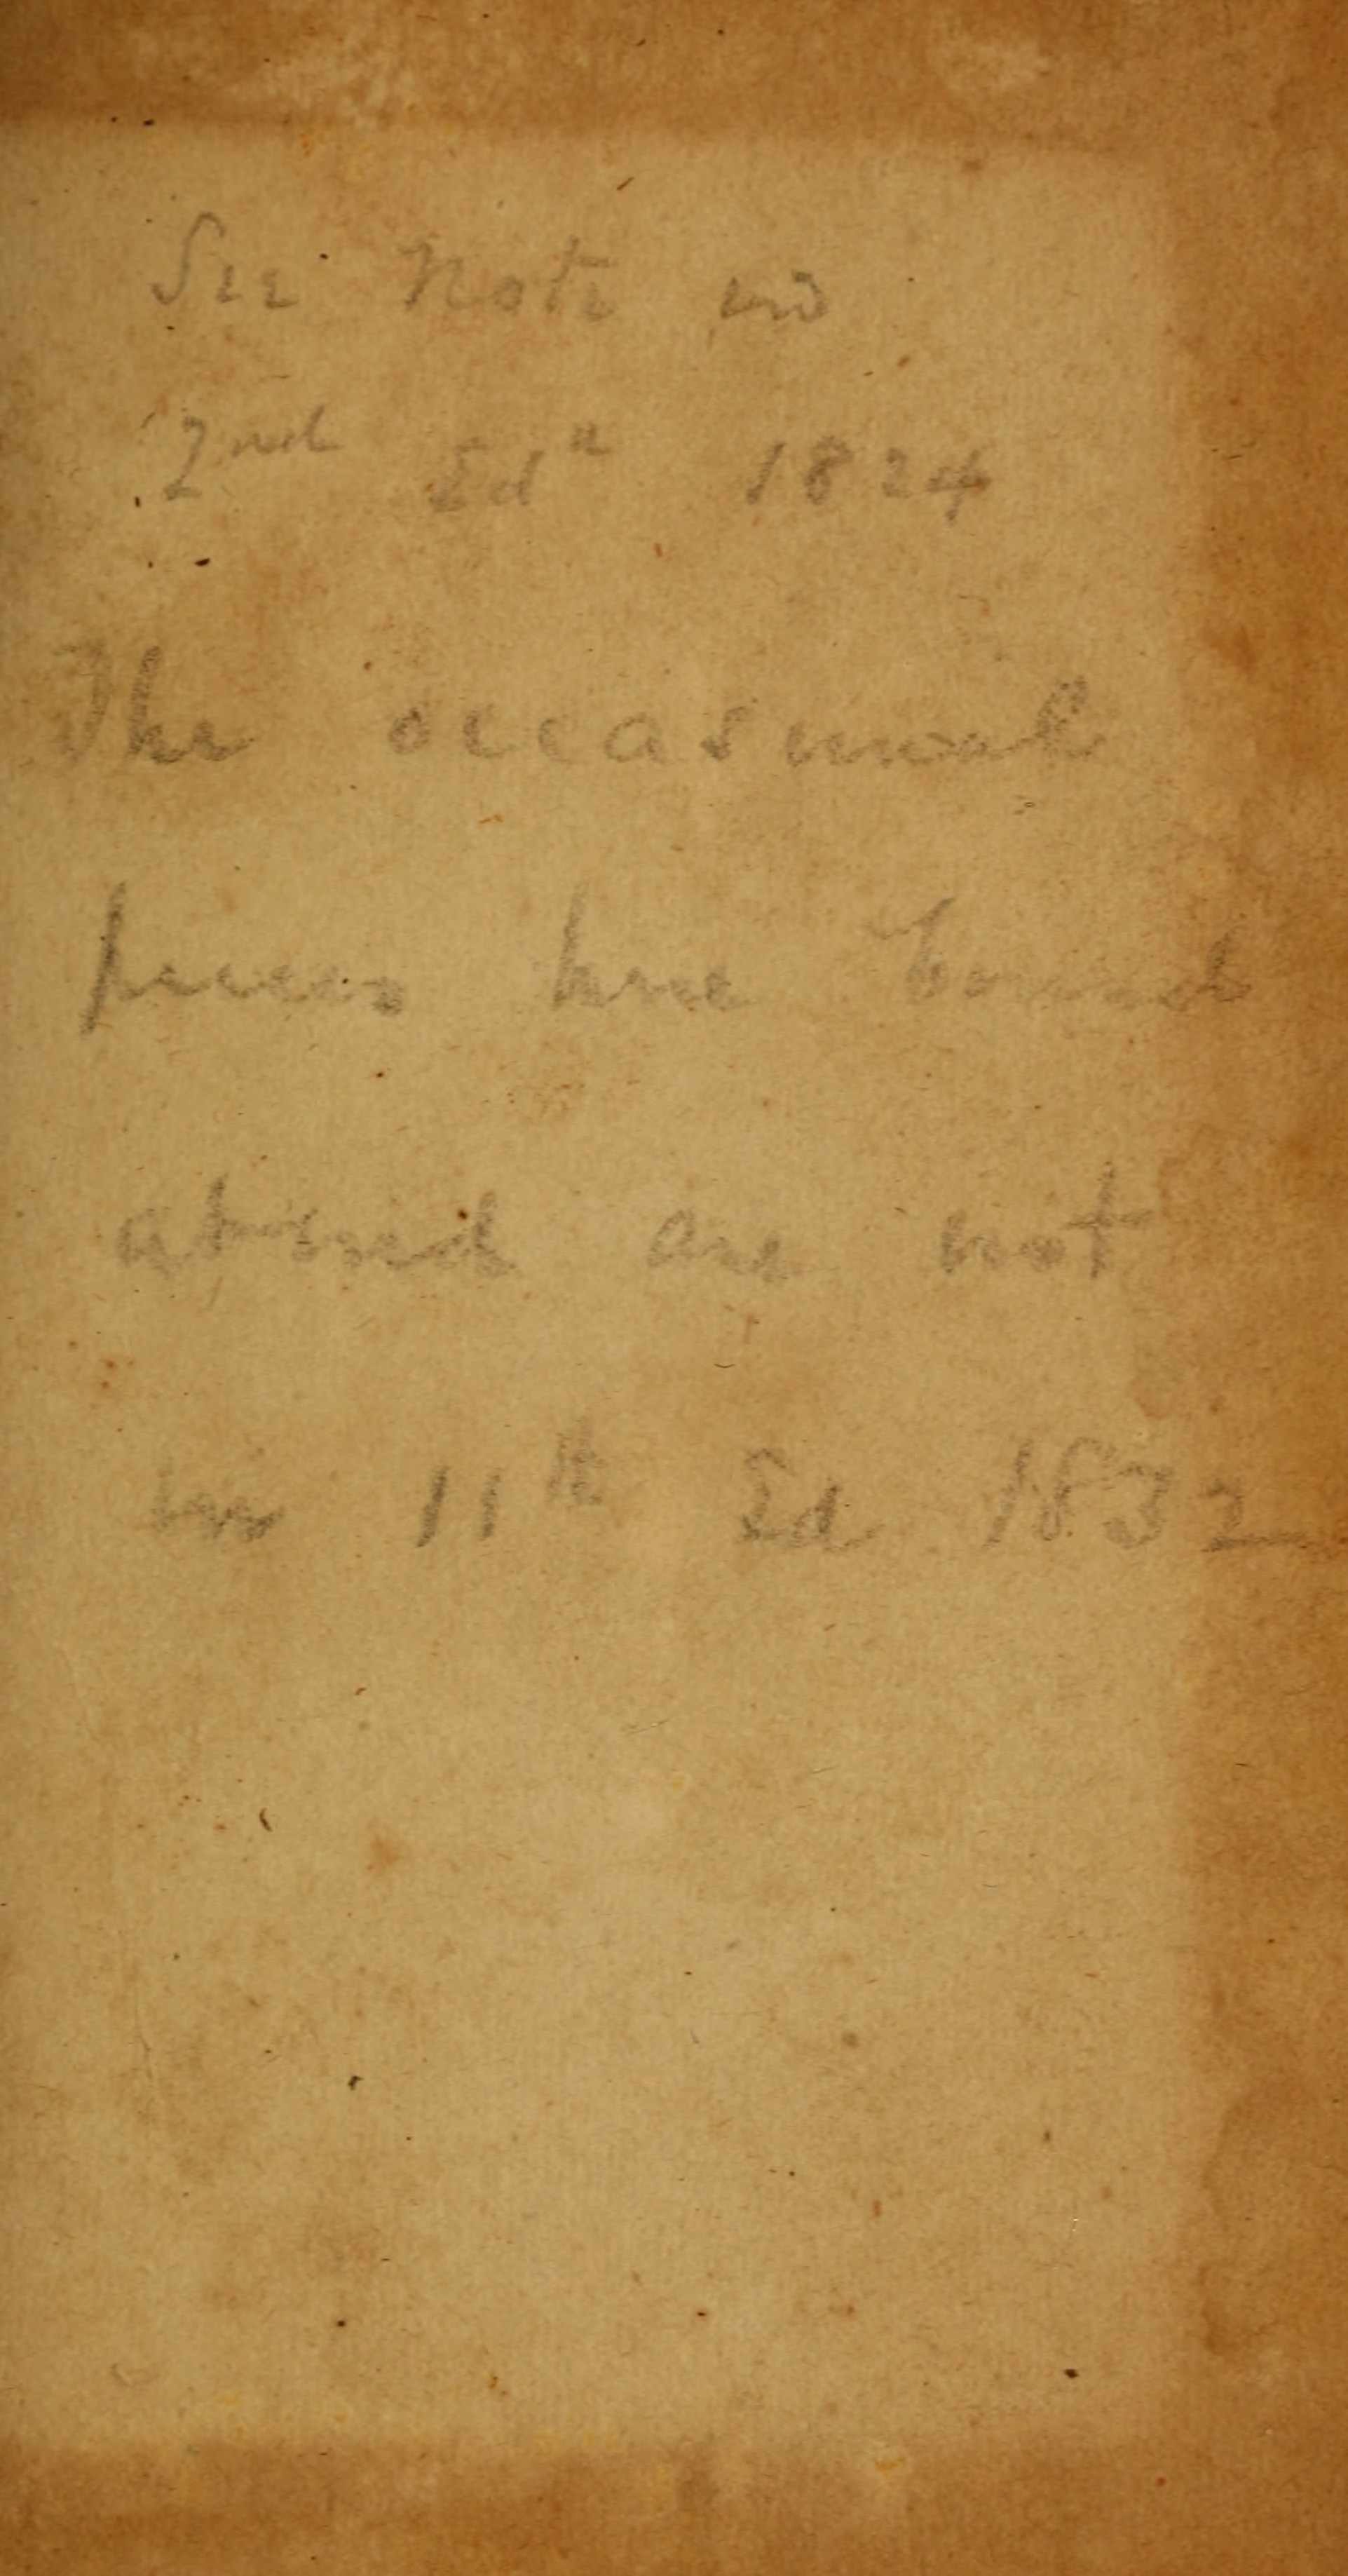 See Note in
2nd Edn 1824
The occasional
pieces here bound
at end are not
in 11th Ed 1832